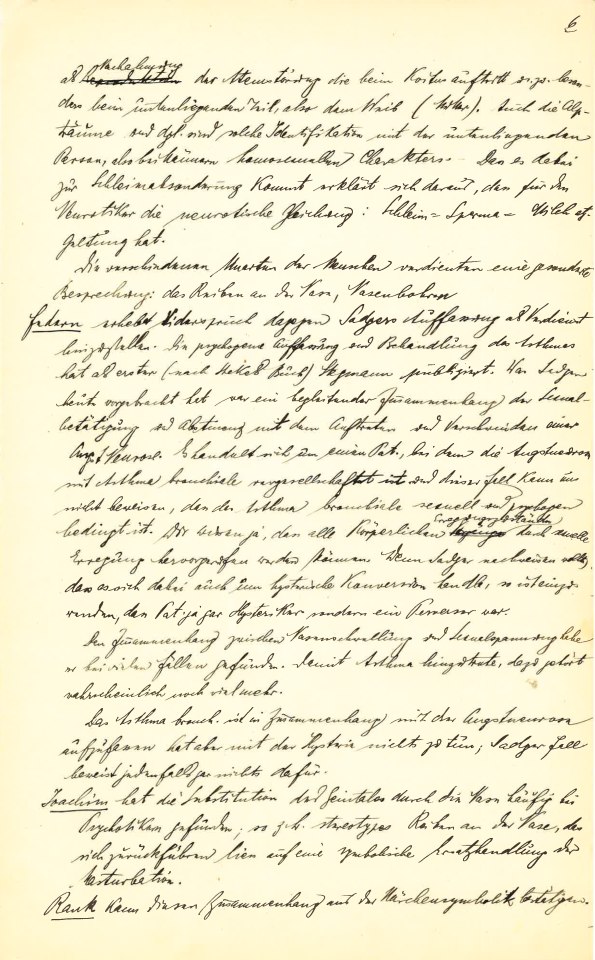 6
Nachahmung
als Reproduktion der Atemstörung die beim Koitus auftritt u. zw. beson-
ders beim untenliegenden Teil, also dem Weib (Adler). Auch die Alp-
träume und dgl. sind solche Identifikation mit der untenliegenden
Person, also bei Männern homosexuellen Charakters. – Dass es dabei
zur Schleimabsonderung kommt erklärt sich daraus, dass für den
Neurotiker die neurotische Gleichung: Schleim = Sperma = Milch etc.
Geltung hat.
Die verschiedenen Unarten der Menschen verdienten eine gesonderte
Besprechung: das Reiben an der Nase, Nasenbohren
Federn erhebt Widerspruch dagegen Sadgers Auffassung als Verdienst
hinzustellen. Die psychogene Auffassung und Behandlung des Asthmas
hat als erster (nach Stekels Buch) Stegmann publiziert. Was Sadger
heute vorgebracht hat war ein begleitender Zusammenhang der Sexual-
betätigung und Abstinenz mit dem Auftreten und Verschwinden einer
Angst Neurose. Es handelt sich um einen Pat., bei dem die Angstneurose
mit Asthma bronchiale vergesellschaftet ist und dieser Fall kann uns
nicht beweisen, dass das Asthma bronchiale sexuell und psychogen
Erregungszustände
bedingt ist. Wir wissen ja, dass alle Körperlichen durch sexuelle
Erregung hervorgerufen werden können. Wenn Sadger nachweisen wollte,
dass es sich dabei auch um hysterische Konversion handle, so ist einzu-
wenden, dass Pat. ja gar Hysteriker sondern ein Perverser war.
Den Zusammenhang zwischen Nasenschwellung und Sexualspannung habe
er bei vielen Fällen gefunden. Damit Asthma hinzutrete, dazu gehört
wahrscheinlich noch viel mehr.
Das Asthma bronch. ist in Zusammenhang mit der Angstneurose
aufzufassen hat aber mit der Hysterie nichts zu tun; Sadgers Fall
beweist jedenfalls gar nichts dafür.
Joachim hat die Substitution des Genitales durch die Nase häufig bei
Psychotikern gefunden; so z. b. stereotypes Reiben an der Nase, das
sich zurückführen liess auf eine symbolische Ersatzhandlung der
Masturbation.
Rank kann diesen Zusammenhang aus der Märchensymbolik bestätigen.